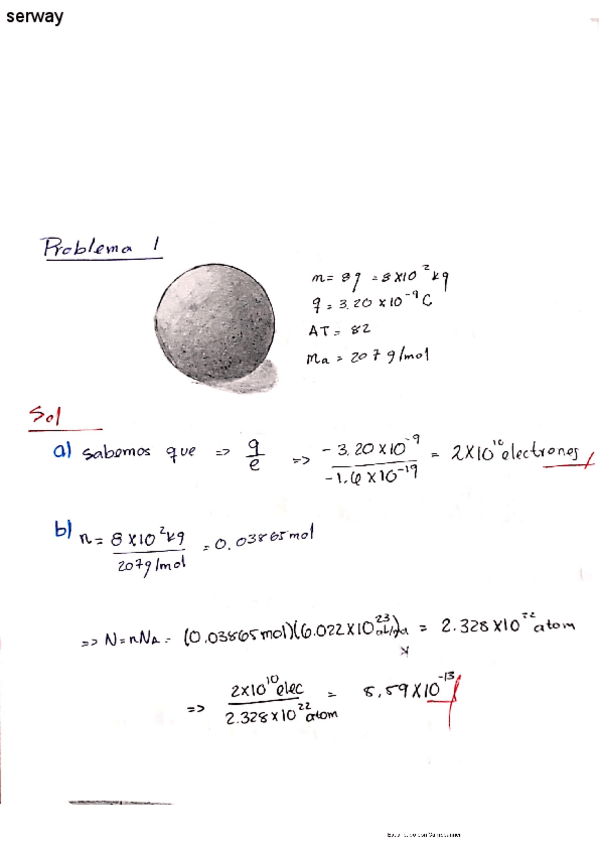 serway
Problema 1
m = 8g = 8X10² kg
q = 3.20 X 10⁻⁹ C
AT = 82
Ma = 207 g/mol
Sol
a) sabemos que => q/e => -3.20X10⁻⁹ / -1.6X10⁻¹⁹ = 2X10¹⁰ electrones
b) n = 8X10² kg / 207g/mol = 0.03865 mol
=> N = nNA = (0.03865mol)(6.022X10²³ = 2.328X10²² atom
=> 2X10¹⁰ elec / 2.328X10²² atom = 8,59X10⁻¹³